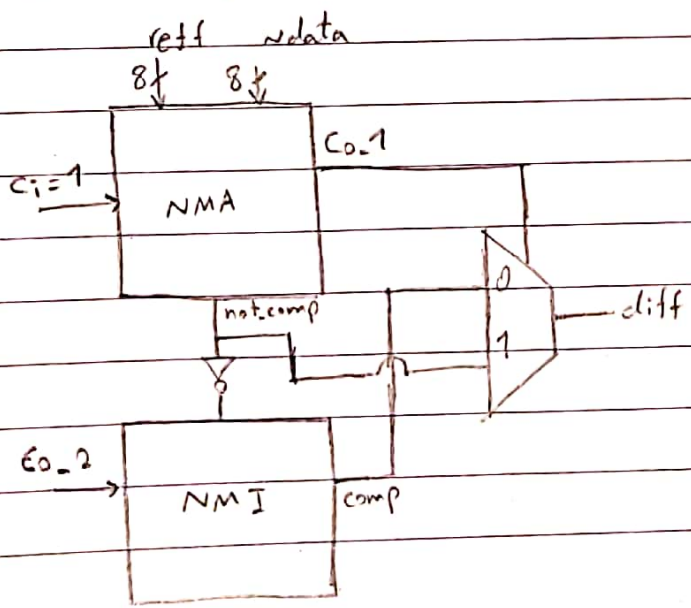 reff ndata
8 8
Co_1
Ci=1
NMA
0
not_comp
diff
1
Co_2
NMI
comp